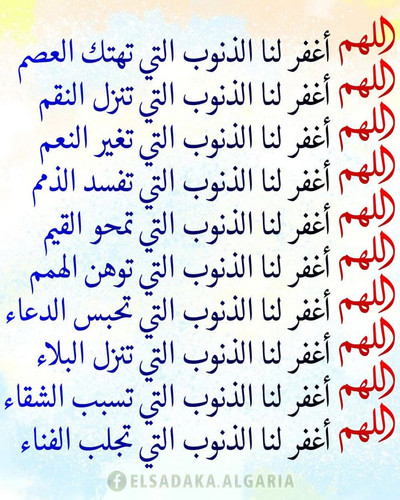 اللهم أغفر لنا الذنوب التي تهتك العصم
اللهم أغفر لنا الذنوب التي تنزل النقم
اللهم أغفر لنا الذنوب التي تغير النعم
اللهم أغفر لنا الذنوب التي تفسد الذمم
اللهم أغفر لنا الذنوب التي تمحو القيم
اللهم أغفر لنا الذنوب التي توهن الهمم
اللهم أغفر لنا الذنوب التي تحبس الدعاء
اللهم أغفر لنا الذنوب التي تنزل البلاء
اللهم أغفر لنا الذنوب التي تسبب الشقاء
اللهم أغفر لنا الذنوب التي تجلب الفناء
ELSADAKA.ALGARIA